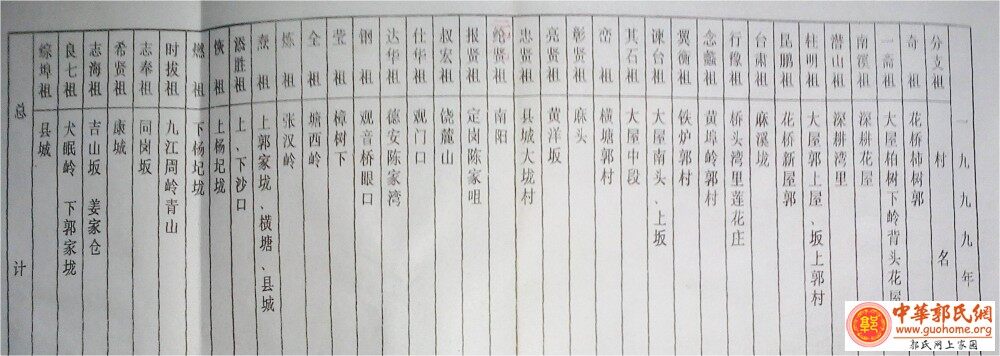 一九九九年
分支祖 村名
奇祖 花桥柿树郭
一斋祖 大屋柏树下岭背头花屋
南溪祖 深耕花屋
潜山祖 深耕湾里
柱明祖 大屋郭上屋、坂上郭村
昆鹏祖 花桥新屋郭
台肃祖 麻溪垅
行豫祖 桥头湾里莲花庄
念蠡祖 黄埠岭郭村
翼衡祖 铁炉郭村
谏台祖 大屋南头、上坂
其石祖 大屋中段
峦祖 横塘郭村
彰贤祖 麻头
亮贤祖 黄洋坂
忠贤祖 县城大垅村
纶贤祖 南阳
报贤祖 定岗陈家咀
叔宏祖 饶麓山
仕华祖 观门口
达华祖 德安陈家湾
钢祖 观音桥眼口
莹祖 樟树下
全祖 塘西岭
炼祖 张汉岭
焘祖 上郭家垅、横塘、县城
添胜祖 上、下沙口
恢祖 上杨圮垅
燃祖 下杨圮垅
时拔祖 九江周岭青山
志奉祖 同岗坂
希贤祖 康城
志海祖 吉山坂 姜家仓
良七祖 犬眠岭 下郭家垅
综埠祖 县城
总计
中華郭氏網
www.guohome.org
郭氏网上家园